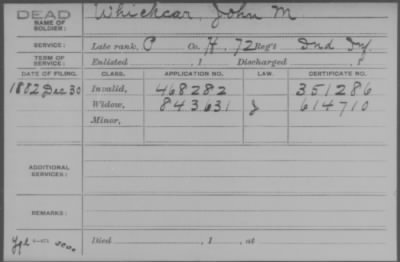 DEAD Whickcar, John M
NAME OF SOLDIER:
SERVICE: Late rank, P Co. H, 72 Reg't Ind Inf
TERM OF SERVICE: Enlisted , 1 Discharged , 1
DATE OF FILING. CLASS. APPLICATION NO. LAW. CERTIFICATE NO.
1882 Dec 30 Invalid, 468282 351286
Widow, 843631 J 614710
Minor,
ADDITIONAL SERVICES:
REMARKS:
Died , 1 , at